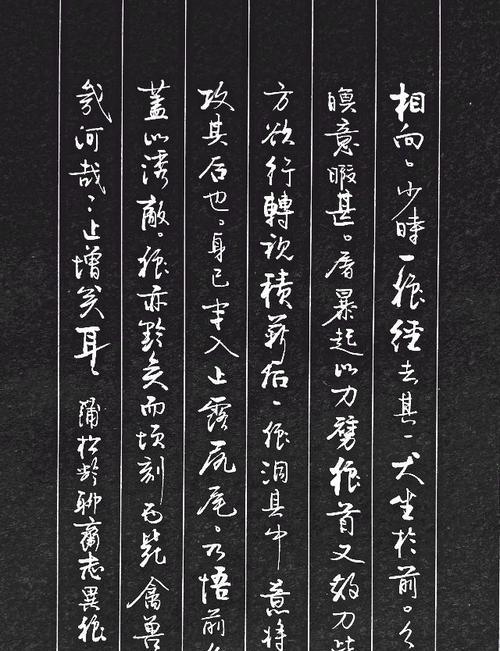 相向。少時一狼經去其一犬坐於前。久
瞑意暇甚。屠暴起以刀劈狼首又數刀斃
方欲行轉視積薪后、一狼洞其中意將
攻其后也。身已半入止露尻尾。乃悟前
蓋以誘敵。狼亦黠矣而頃刻兩斃禽獸
幾何哉、止增笑耳、蒲松齡聊齋志異狼